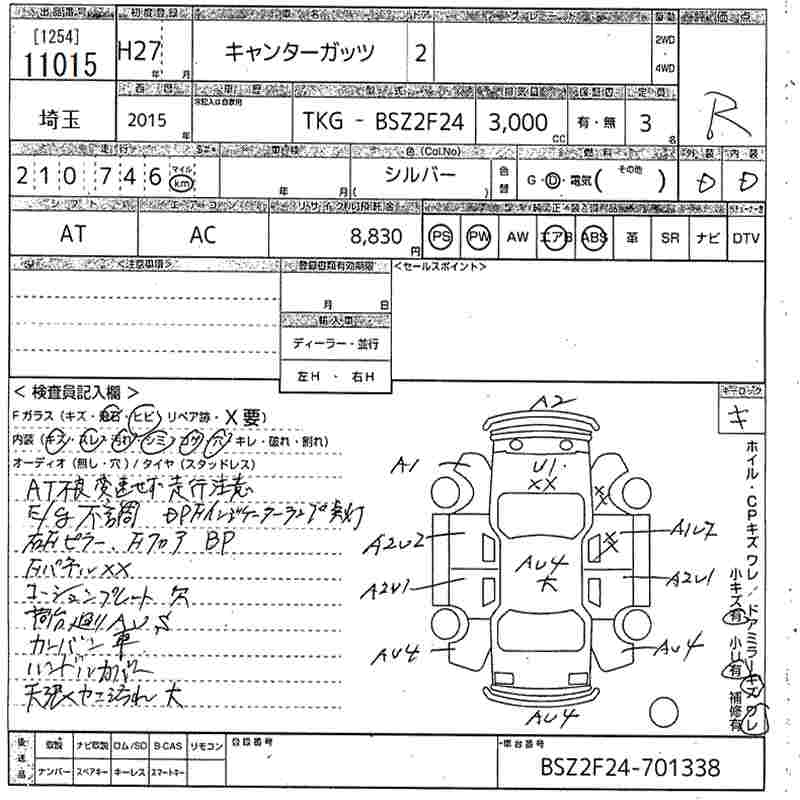 出品番号 初度登録 車名 ドア グレード 駆動 評価点
[1254]
11015 H27 年 月 キャンターガッツ 2 2WD・4WD R
西暦 車歴 型式 排気量 定員
埼玉 2015 年 TKG - BSZ2F24 3,000 CC 有・無 3 名
走行 車検 色(Col.No) 燃料 外装 内装
210746 マイル km 年 月 シルバー ( ) 色替 G・D・電気( その他 ) D D
シフト エアコン リサイクル預託金
AT AC 8,830 円 PS PW AW エアB ABS 革 SR ナビ DTV
<注意事項> 登録書類有効期限 <セールスポイント>
月 日
輸入車
ディーラー・並行
左H ・ 右H
< 検査員記入欄 > キーロック
キ
Fガラス (キズ・飛石・ヒビ) リペア跡・X要)
内装 (キズ・スレ・汚れ・シミ・コゲ・穴・キレ・破れ・割れ)
オーディオ (無し・穴) / タイヤ (スタッドレス)
AT不良 変速せず 走行注意
E/g 不調 DPFインジケーターランプ点灯
右Fピラー、Fフロア BP
FパネルXX
コーションプレート欠
荷台廻りAUS
カーバン車
ハンドルカバー
天張ヤニ汚れ 大
A2
A1
U1
XX
XX
XX
A2U2
A1U2
AU4
大
A2U1
A2U1
AU4
AU4
AU4
ホイル・CPキズワレ/ドアミラーキズワレ
小キズ有 小U有 補修有
後送品 取説 ナビ取説 ロム/SD B-CAS リモコン 登録番号 車台番号
ナンバー スペアキー キーレス スマートキー BSZ2F24-701338